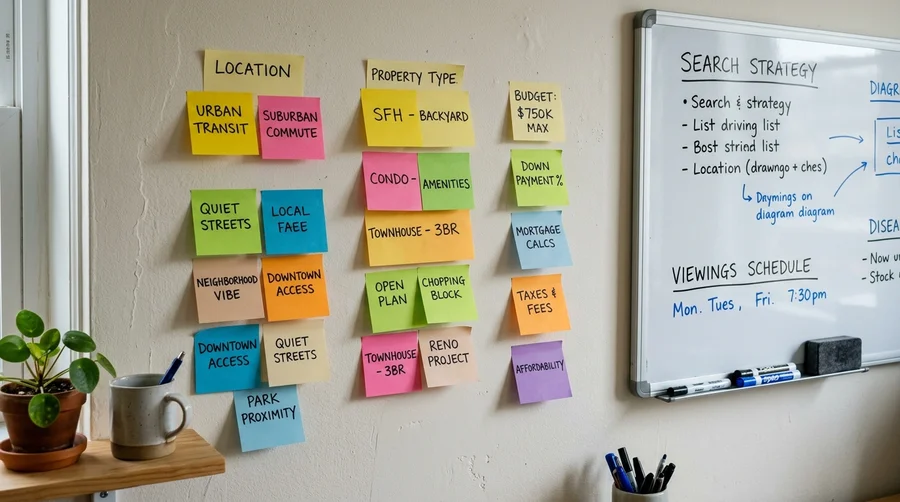 LOCATION
URBAN
TRANSIT
SUBURBAN
COMMUTE
QUIET
STREETS
LOCAL
FAEE
NEIGHBORHOOD
VIBE
DOWNTOWN
ACCESS
DOWNTOWN
ACCESS
QUIET
STREETS
PARK
PROXIMITY
PROPERTY TYPE
SFH - BACKYARD
CONDO- AMENITIES
TOWNHOUSE - 3BR
OPEN
PLAN
CHOPPING
BLOCK
TOWNHOUSE
- 3BR
RENO
PROJECT
BUDGET:
$750K
MAX
DOWN
PAYMENT %
MORTGAGE
CALCS
TAXES &
FEES
AFFORDABILITY
SEARCH STRATEGY
• Search & strategy
- List driving list
- Bost strind list
- Location (drawngo + ches)
↳ Drymings on
diagram diagram
VIEWINGS SCHEDULE
Mon. Tues, Fri. 7:30pm
DIAGR
Lis
ch
DISEA
- Now u
- Stock